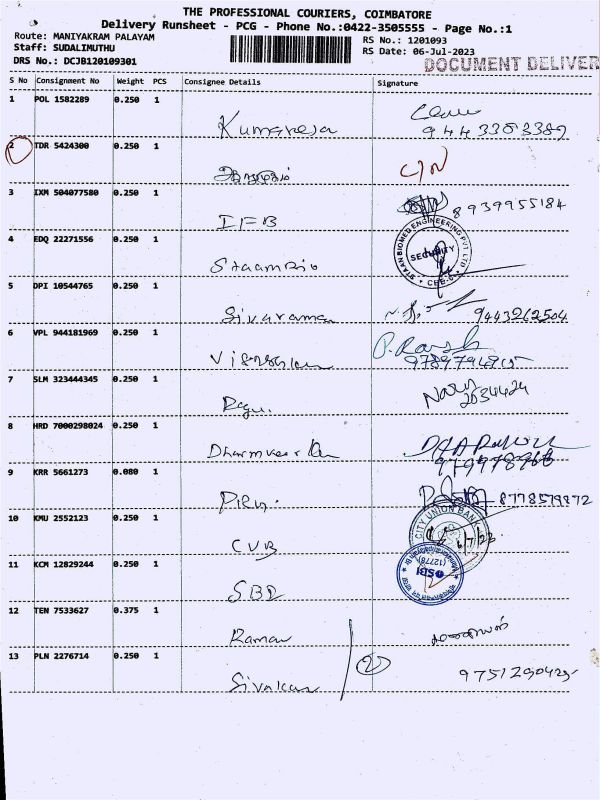 THE PROFESSIONAL COURIERS, COIMBATORE
Delivery Runsheet - PCG - Phone No.:0422-3505555 - Page No.:1
Route: MANIYAKRAM PALAYAM
RS No.: 1201093
Staff: SUDALIMUTHU
RS Date: 06-Jul-2023
DRS No.: DCJB120109301
DOCUMENT DELIVER
S No Consignment No Weight PCS Consignee Details Signature
1 POL 1582289 0.250 1
Kumaraja
2 TDR 5424300 0.250 1
3 IXM 504077580 0.250 1
IFB 8939955184
4 EDQ 22271556 0.250 1
STAAN BIOMED ENGINEERING PVT LTD
SECURITY
CBE-6
5 DPI 10544765 0.250 1
Sivaraman 9443262504
6 VPL 944181969 0.250 1
7 SLM 323444345 0.250 1
Ragu.
2034424
8 HRD 7000298024 0.250 1
Dharmveer
9 KRR 5661273 0.080 1
8778579872
10 KMU 2552123 0.250 1
CITY UNION BANK
CUB 6/7/23
11 KCM 12829244 0.250 1
SBI
(12778)
SBI
12 TEN 7533627 0.375 1
Raman
13 PLN 2276714 0.250 1
2
Sivakan